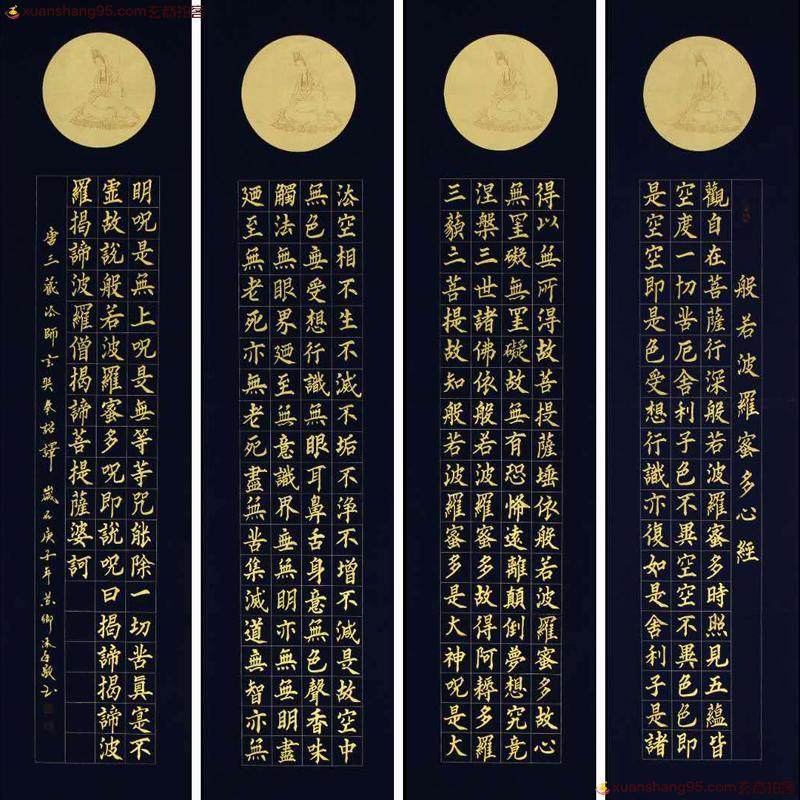 xuanshang95.com
般若波羅蜜多心經
觀自在菩薩行深般若波羅蜜多時照見五蘊皆
空度一切苦厄舍利子色不異空空不異色色即
是空空即是色受想行識亦復如是舍利子是諸
法空相不生不滅不垢不淨不增不減是故空中
無色無受想行識無眼耳鼻舌身意無色聲香味
觸法無眼界廼至無意識界無無明亦無無明盡
廼至無老死亦無老死盡無苦集滅道無智亦無
得以無所得故菩提薩埵依般若波羅蜜多故心
無罣礙無罣礙故無有恐怖遠離顛倒夢想究竟
涅槃三世諸佛依般若波羅蜜多故得阿耨多羅
三藐三菩提故知般若波羅蜜多是大神呪是大
明呪是無上呪是無等等咒能除一切苦真寔不
虛故說般若波羅蜜多呪即說呪曰揭諦揭諦波
羅揭諦波羅僧揭諦菩提薩婆訶
唐三藏法師玄奘奉詔譯 歲在庚子年
xuanshang95.com